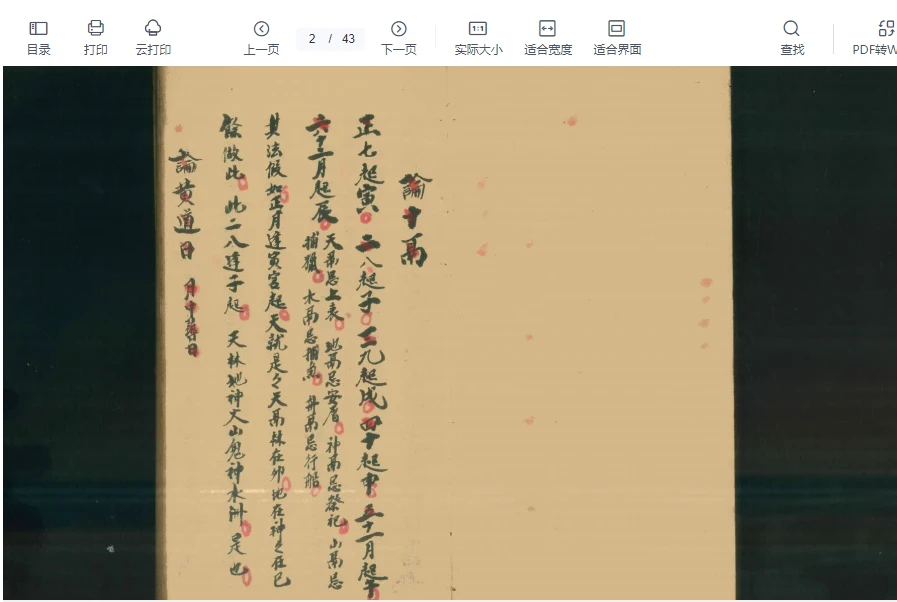 目录
打印
云打印
上一页
2 / 43
下一页
1:1
实际大小
适合宽度
适合界面
查找
PDF转W
論十鬲
正七起寅 二八起子 三九起戌 四十起申 五十一月起午
六十二月起辰 天鬲忌上表 地鬲忌安 神鬲忌祭祀 山鬲忌
捕獵 水鬲忌捕魚 井鬲忌行船
其法假如正月逢寅宮起天就是々天鬲 在卯地在神々在巳
餘做此 此二八逢子起 天林地神火山鬼神水 是也
論黃道日 月中